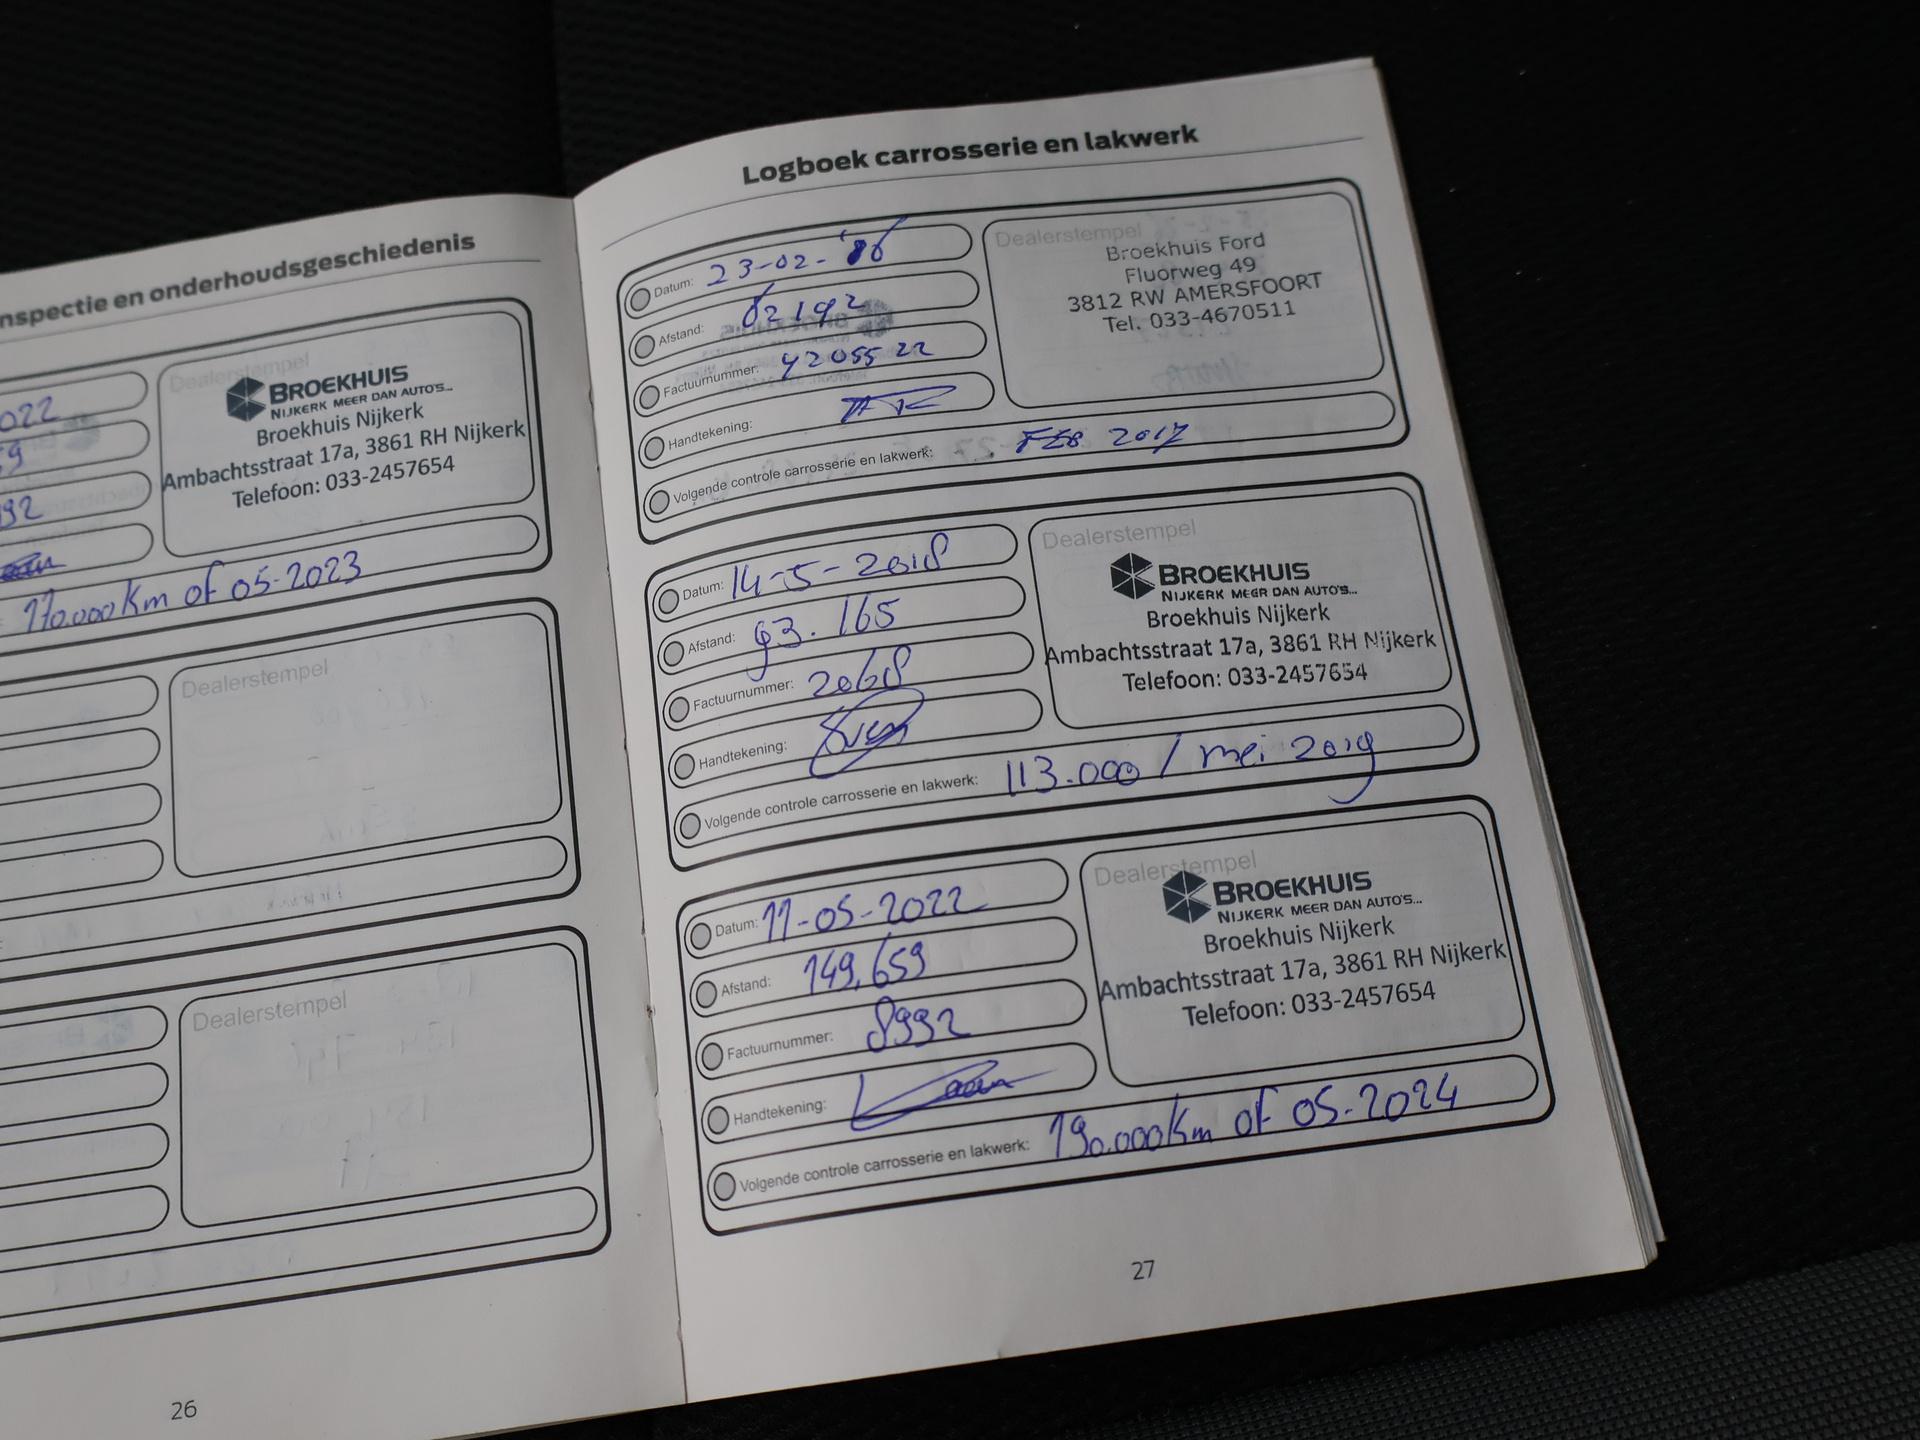 nspectie en onderhoudsgeschiedenis
022
Dealerstempel
BROEKHUIS
NIJKERK MEER DAN AUTO'S...
Broekhuis Nijkerk
Ambachtsstraat 17a, 3861 RH Nijkerk
Telefoon: 033-2457654
59
992
170.000 Km of 05-2023
Dealerstempel
Dealerstempel
26
Logboek carrosserie en lakwerk
Datum: 23-02-
Afstand: 62192
Factuurnummer: 4205522
Handtekening:
Volgende controle carrosserie en lakwerk: FEB 2017
Dealerstempel
Broekhuis Ford
Fluorweg 49
3812 RW AMERSFOORT
Tel. 033-4670511
Datum: 14-5-2018
Afstand: 93.165
Factuurnummer: 2068
Handtekening:
Volgende controle carrosserie en lakwerk: 113.000 / mei 2019
Dealerstempel
BROEKHUIS
NIJKERK MEER DAN AUTO'S...
Broekhuis Nijkerk
Ambachtsstraat 17a, 3861 RH Nijkerk
Telefoon: 033-2457654
Datum: 11-05-2022
Afstand: 149.659
Factuurnummer: 8992
Handtekening:
Volgende controle carrosserie en lakwerk: 190.000 Km of 05-2024
Dealerstempel
BROEKHUIS
NIJKERK MEER DAN AUTO'S...
Broekhuis Nijkerk
Ambachtsstraat 17a, 3861 RH Nijkerk
Telefoon: 033-2457654
27